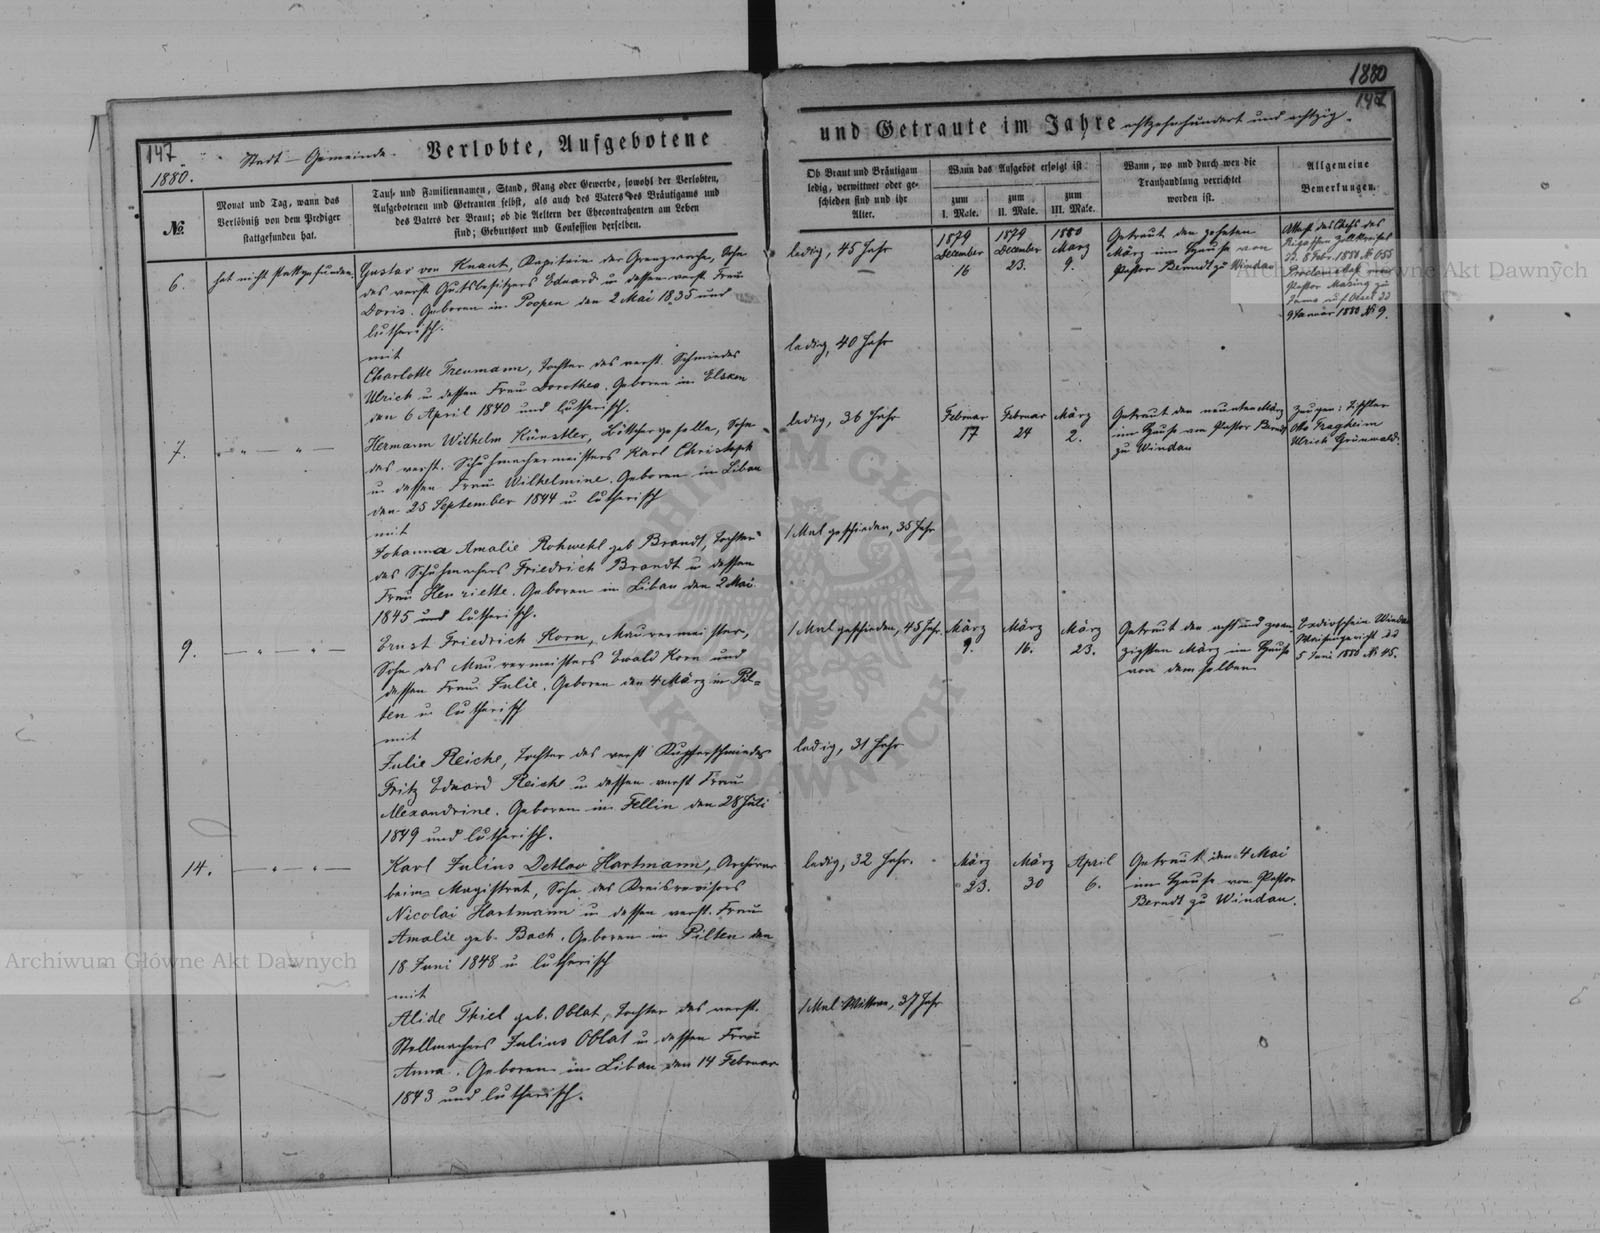 1880
147
147
1880.
Stadt-Gemeinde. Verlobte, Aufgebotene
und Getraute im Jahre achtzehnhundert und achtzig.
№.
Monat und Tag, wann das
Verlöbniß von dem Prediger
stattgefunden hat.
Tauf- und Familiennamen, Stand, Rang oder Gewerbe, sowohl der Verlobten,
Aufgebotenen und Getrauten selbst, als auch des Vaters des Bräutigams und
des Vaters der Braut; ob die Aeltern der Ehecontrahenten am Leben
sind; Geburtsort und Confession derselben.
Ob Braut und Bräutigam
ledig, verwittwet oder ge-
schieden sind und ihr
Alter.
Wann das Aufgebot erfolgt ist:
zum
I. Male.
zum
II. Male.
zum
III. Male.
Wann, wo und durch wen die
Trauhandlung verrichtet
worden ist.
Allgemeine
Bemerkungen.
6.
hat nicht stattgefunden.
Gustav von Knaut, Kapitain der Grenzwache, Sohn
des verst. Gutsbesitzers Eduard u dessen verst. Frau
Doris. Geboren in Poopen den 2 Mai 1835 und
lutherisch.
mit
Charlotte Treumann, Tochter des verst. Schmiedes
Ulrich u dessen Frau Dorothea. Geboren in Elsken
den 6 April 1840 und lutherisch.
ledig, 45 Jahr
ledig, 40 Jahr
1879
December
16
1879
December
23.
1880
März
9.
Getraut den zehnten
März im Hause von
Pastor Berndt zu Windau
Attest des Chefs des
Rigaschen Zollkreises
d.d. 8 Febr. 1880 № 655
Pastor Masing zu
9 Januar 1880 № 9.
7.
Hermann Wilhelm Künstler, Böttchergeselle, Sohn
des verst. Schuhmachermeisters Karl Christoph
u dessen Frau Wilhelmine. Geboren in Libau
den 25 September 1844 u lutherisch
mit
Johanna Amalie Rohwehl geb Brandt, Tochter
des Schuhmachers Friedrich Brandt u dessen
Frau Henriette. Geboren in Libau den 2 Mai
1845 und lutherisch.
ledig, 36 Jahr
1 Mal geschieden, 35 Jahr
Februar
17
Februar
24
März
2.
Getraut den neunten März
im Hause von Pastor Berndt
zu Windau
Zeugen: Tischler
Otto Tragheim
Ulrich Grünwald.
9.
Ernst Friedrich Korn, Maurermeister,
Sohn des Maurermeisters Ewald Korn und
dessen Frau Julie. Geboren den 4 März in Pil-
ten u lutherisch
mit
Julie Reiche, Tochter des verst Kupferschmiedes
Fritz Eduard Reiche u dessen verst Frau
Alexandrine. Geboren in Fellin den 28 Juli
1849 und lutherisch.
1 Mal geschieden, 45 Jahr.
ledig, 31 Jahr
März
9.
März
16.
März
23.
Getraut den acht und zwan-
zigsten März im Hause
von demselben
Windau
Waisengericht d.d
5 Juni 1880 № 45.
14.
Karl Julius Detlav Hartmann, Archivar
beim Magistrat, Sohn des Kreisrevisors
Nicolai Hartmann u dessen verst. Frau
Amalie geb. Bach. Geboren in Pilten den
18 Juni 1848 u lutherisch
mit
Alide Thiel geb. Oblat, Tochter des verst.
Stellmachers Julius Oblat u dessen Frau
Anna. Geboren in Libau den 14 Februar
1843 und lutherisch.
ledig, 32 Jahr.
1 Mal Wittwe, 37 Jahr
März
23.
März
30
April
6.
Getraut den 4 Mai
im Hause von Pastor
Berndt zu Windau.
Archiwum Główne Akt Dawnych
Archiwum Główne Akt Dawnych
ARCHIWUM GŁÓWNE AKT DAWNYCH